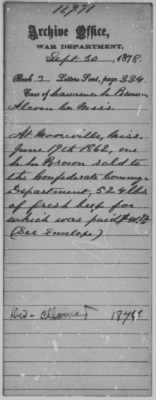 Archive Office,
WAR DEPARTMENT.
Sept 30, 1878.
Book 3 Letters Sent, page 334
Case of Lawrence L. Brown
Co Miss.
At Mooreville, Miss.
June 19th 1862, one
L. L. Brown sold to
the Confederate Comm'y
Department, 524 lbs
of fresh beef for
which was paid
(See Envelope)
1878